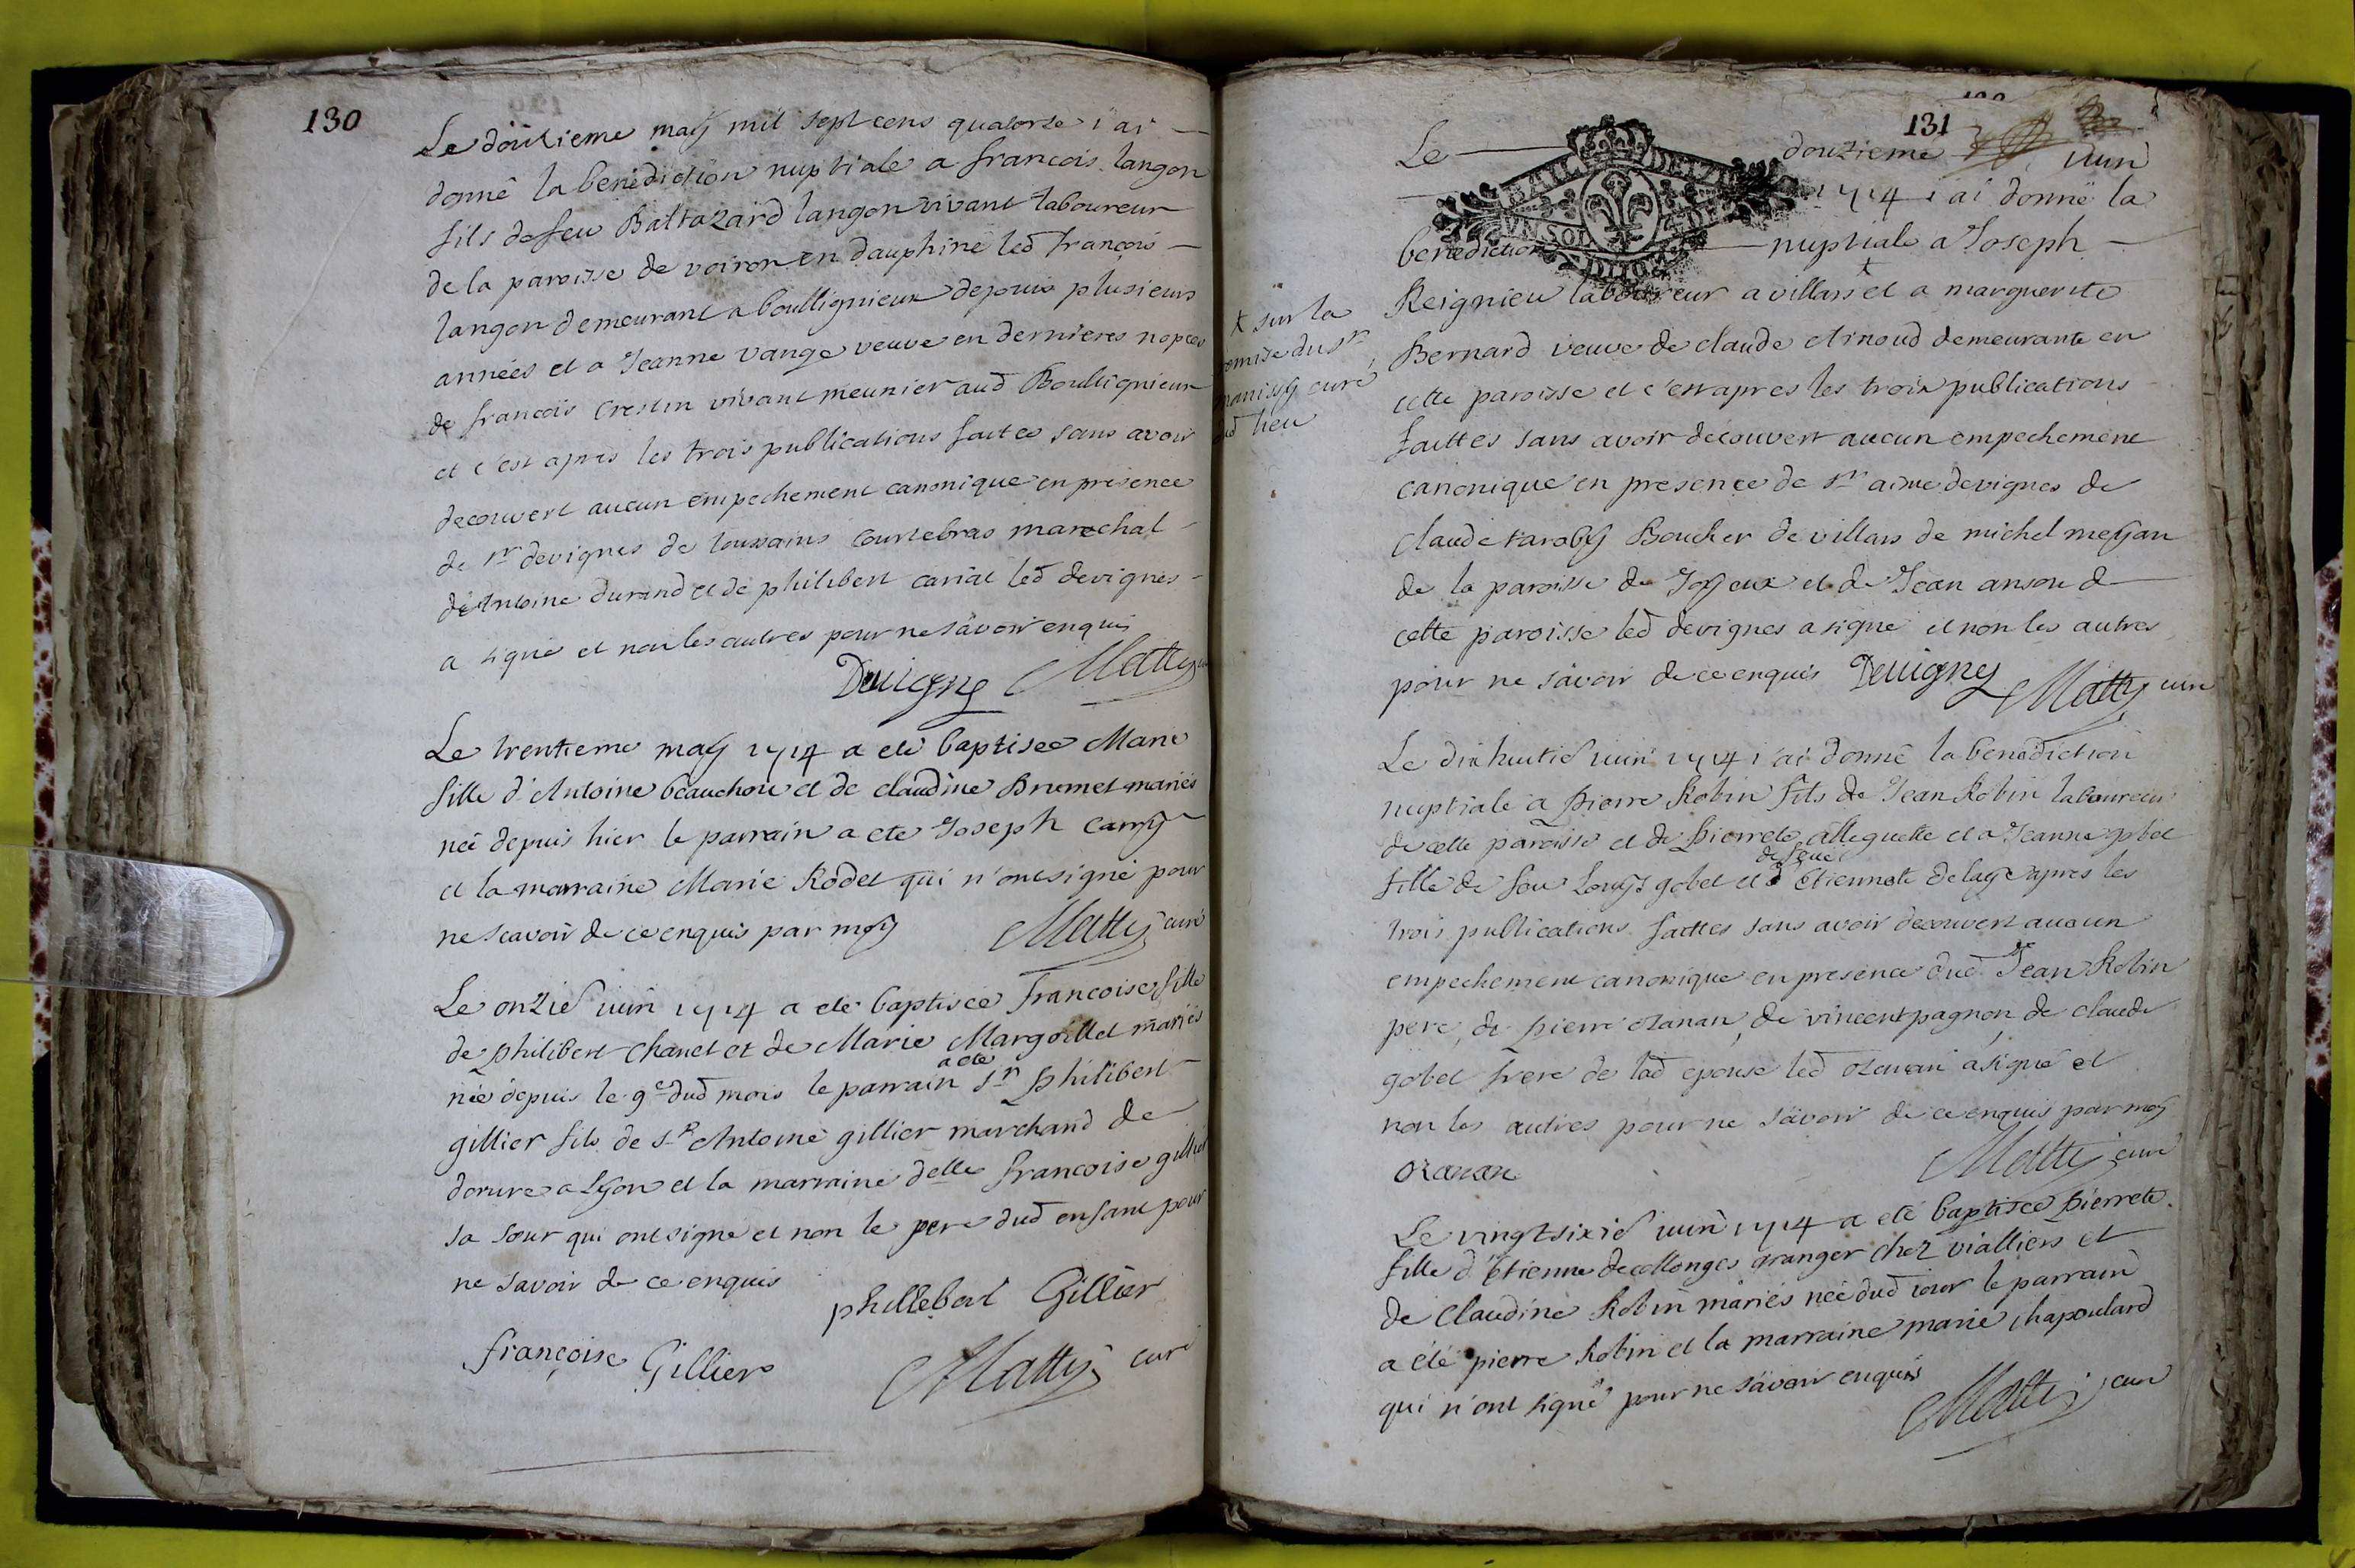 130
Le douzieme may mil sept cens quatorse i'ai
donné la benediction nuptiale a francois langon
fils de feu Baltazard langon vivant laboureur
de la paroisse de voiron en dauphiné led francois
langon demeurant a boullignieux depuis plusieurs
années et a Jeanne vange veuve en dernieres nopces
de francois Crestin vivant meunier aud Boullignieux
et c'est apres les trois publications faites sans avoir
decouvert aucun empechement canonique en presence
de sr devignes de toussains Courtebras marechal
de Antoine durand et de philibert carrat led devignes
a signé et non les autres pour ne sàvoir enquis
Devigne Matty
Le trentieme may 1714 a eté baptisée Marie
fille d'Antoine beauchon et de claudine Brunet mariés
née depuis hier le parrain a ete Joseph Carry
et la marraine Marie Rodet qui n'ont signé pour
ne scavoir de ce enquis par moy Matty curé
Le onzie iuin 1714 a eté baptisée francoise fille
de philibert Chanel et de Marie Margoillet mariés
née depuis le 9e dud mois le parrain a ete sr philibert
gillier fils de sr Antoine gillier marchand de
dorure a Lyon et la marraine delle francoise gillier
sa sour qui ont signé et non le pere dud enfant pour
ne savoir de ce enquis phillebert Gillier
françoise Gillier Matty curé
131
Le douzieme iuin
1714 i'ai donné la
benediction nuptiale a Joseph
Reignieu laboureur a villars et a marguerite
x sur la
remise du sr
curé
dud lieu
Bernard veuve de claude demeurante en
cette paroisse et c'est apres les trois publications
faittes sans avoir decouvert aucun empechement
canonique en presence de sr aimé devignes de
claude taroby Boucher de villars de michel meyan
de la paroisse de Joyeux et de Jean anson de
cette paroisse led devignes a signé et non les autres
pour ne sàvoir de ce enquis Devigne Matty curé
Le dixhuitie iuin 1714 i'ai donné la benediction
nuptiale a pierre Robin fils de Jean Robin laboureur
de cette paroisse et de pierrete alleguette et a Jeanne gobet
fille de feu Louys gobet et de feue Etiennete delaye apres les
trois publications faittes sans avoir decouvert aucun
empechement canonique en presence dud Jean Robin
pere, de pierre ozanan, de vincent pagnon, de claude
gobet frere de lad epouse led ozanan a signé et
non les autres pour ne sàvoir de ce enquis par moy
ozanan Matty curé
Le vingtsixie iuin 1714 a eté baptisée pierrete
fille d'Etienne decollonges granger chez vialliers et
de Claudine Robin mariés née dud iour le parrain
a eté pierre Robin et la marraine marie chapoulard
qui n'ont signé pour ne sàvoir enquis Matty curé